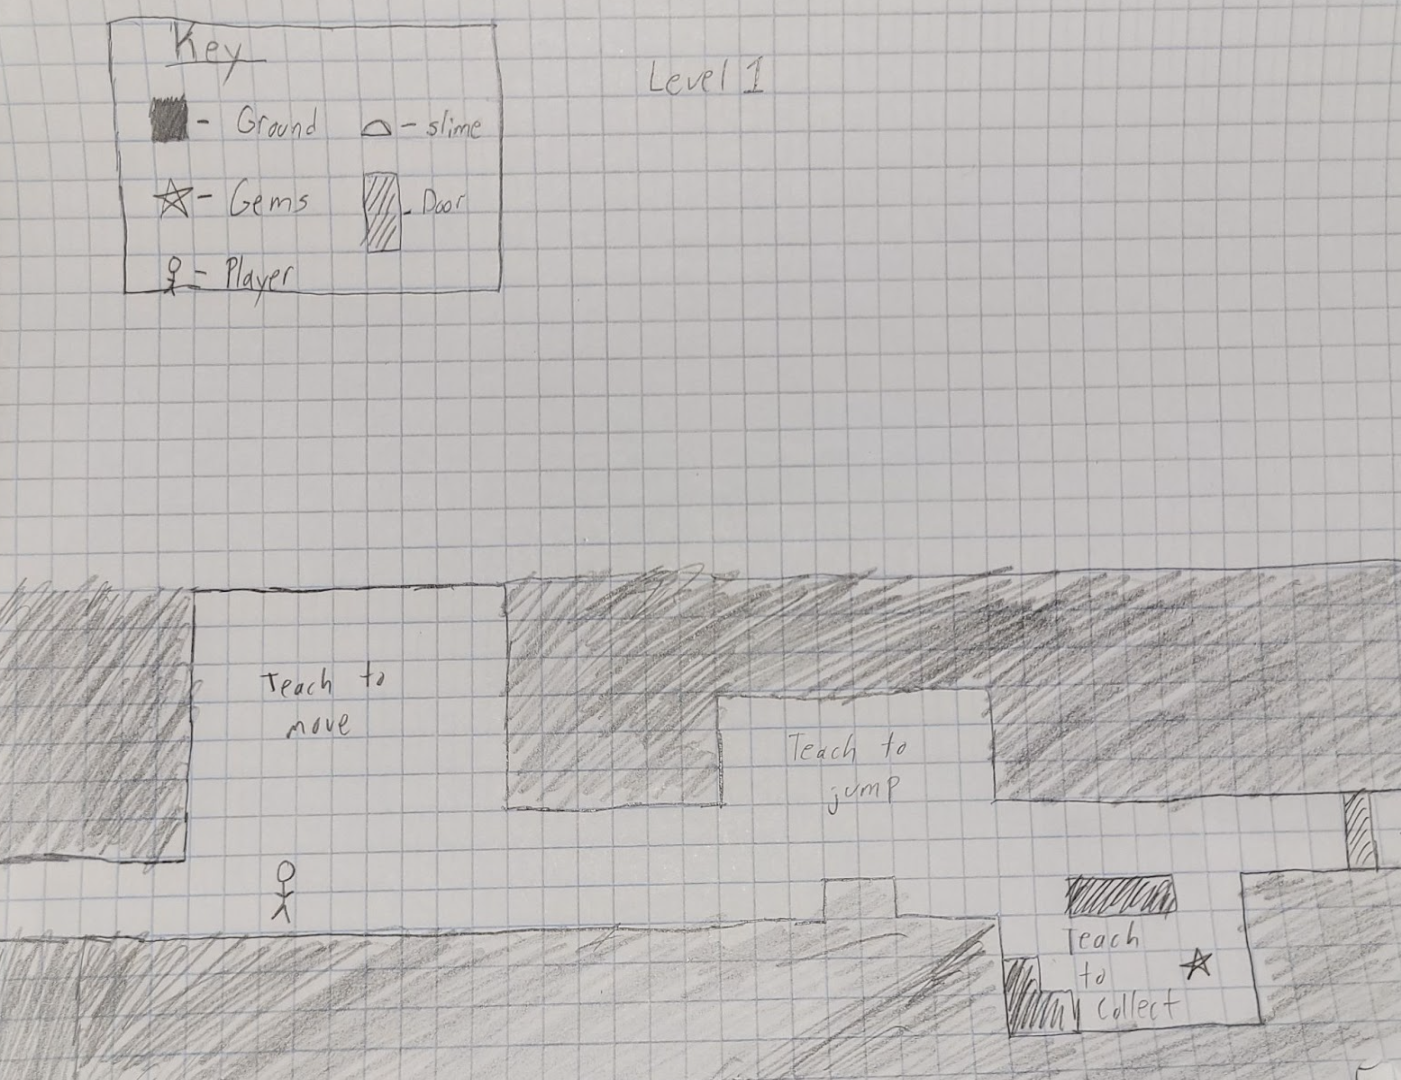 Key
Level 1
- Ground
- slime
- Gems
- Door
- Player
Teach to
move
Teach to
jump
Teach
to
collect